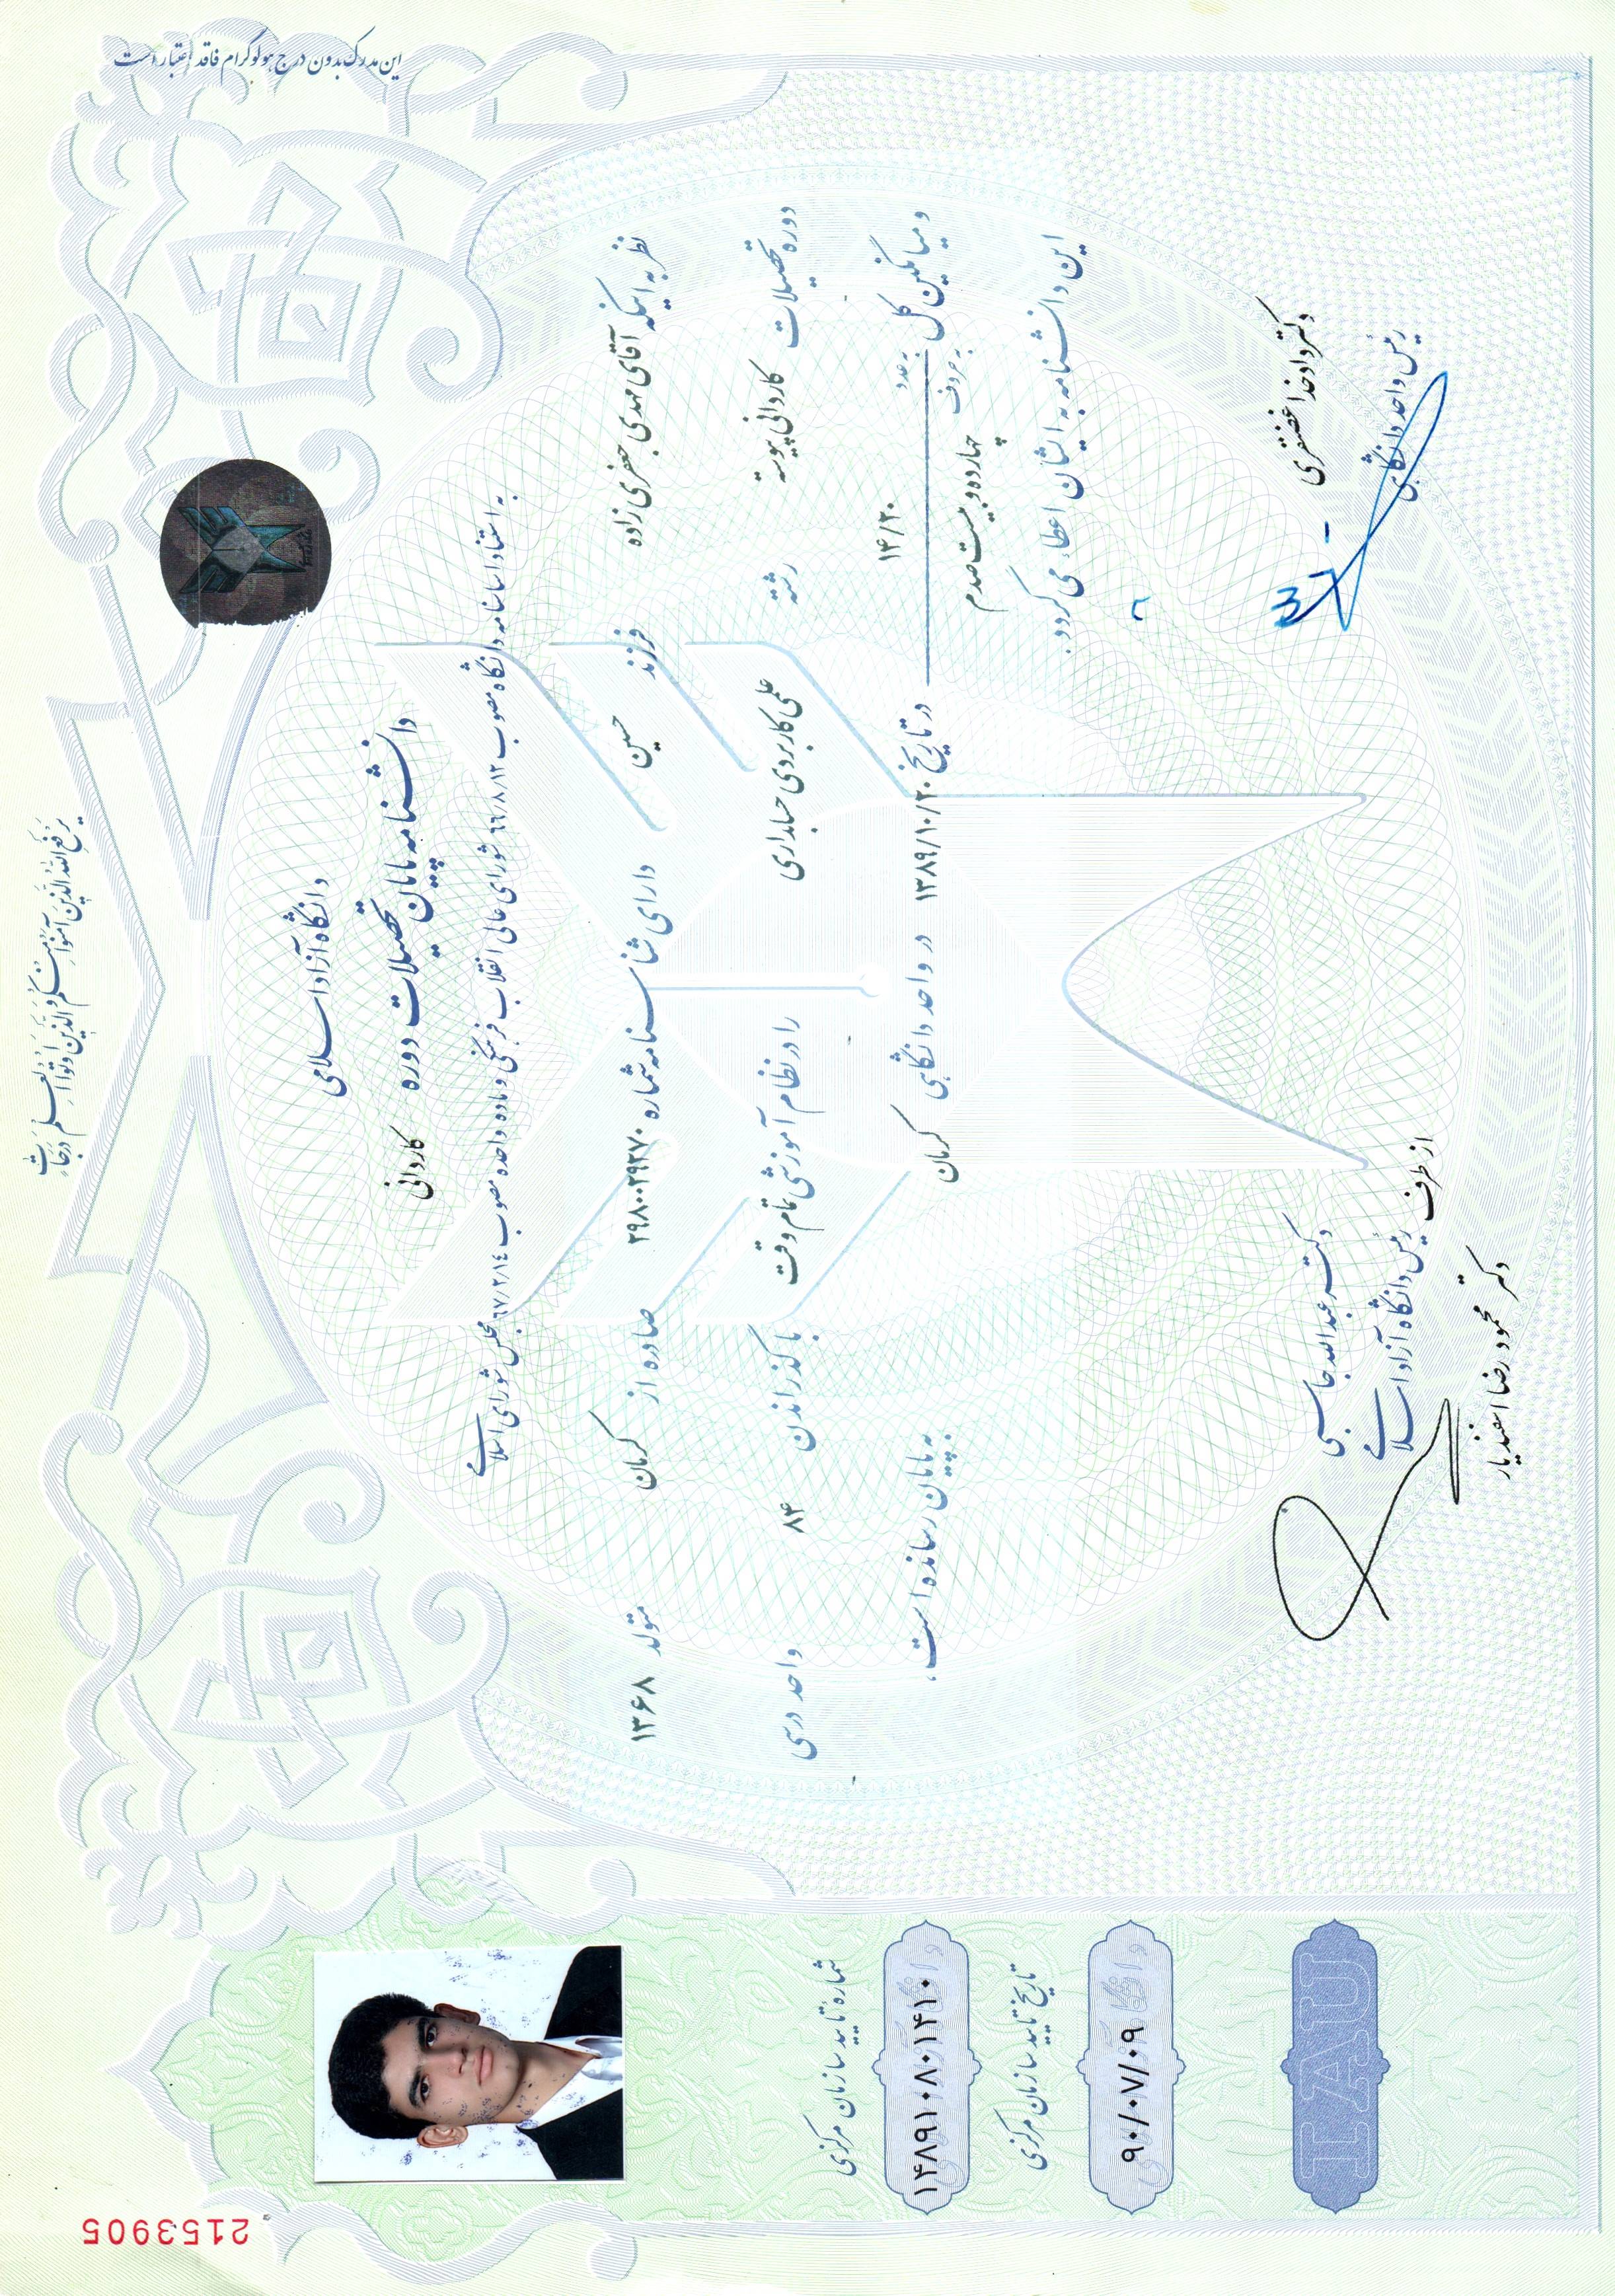 یَرفَعِ اللهُ الَّذینَ آمَنوا مِنکُم وَ الَّذینَ اُوتُوا العِلمَ دَرَجاتٍ
این مدرک بدون درج هولوگرام فاقد اعتبار است
دانشگاه آزاد اسلامی
دانشنامه پایان تحصیلات دوره کاردانی
به استناد اساسنامه دانشگاه مصوب ۶۶/۸/۱۲ شورای عالی انقلاب فرهنگی و ماده واحده مصوب ۶۷/۲/۱۴ مجلس شورای اسلامی
نظر به اینکه آقای مهدی جعفری زاده فرزند حسین دارای شناسنامه شماره ۲۹۸۰۰۲۹۲۷۰ صادره از کرمان متولد ۱۳۶۸
دوره تحصیلات کاردانی پیوسته رشته علمی کاربردی حسابداری را در نظام آموزشی تمام وقت با گذراندن ۸۴ واحد درسی
و میانگین کل به عدد ۱۴/۲۰ به حروف چهارده و بیست صدم در تاریخ ۱۳۸۹/۱۰/۲۰ در واحد دانشگاهی کرمان به پایان رسانده است،
این دانشنامه به ایشان اعطاء می گردد.
دکتر دادخدا غضنفری
رئیس واحد دانشگاهی
دکتر عبدالله جاسبی
رئیس دانشگاه آزاد اسلامی
از طرف
دکتر محمود رضا اسفندیار
شماره تایید سازمان مرکزی
۱۴۸۹۱۰۸۰۱۴۱۰
تاریخ تایید سازمان مرکزی
۹۰/۰۷/۰۹
IAU
2153905